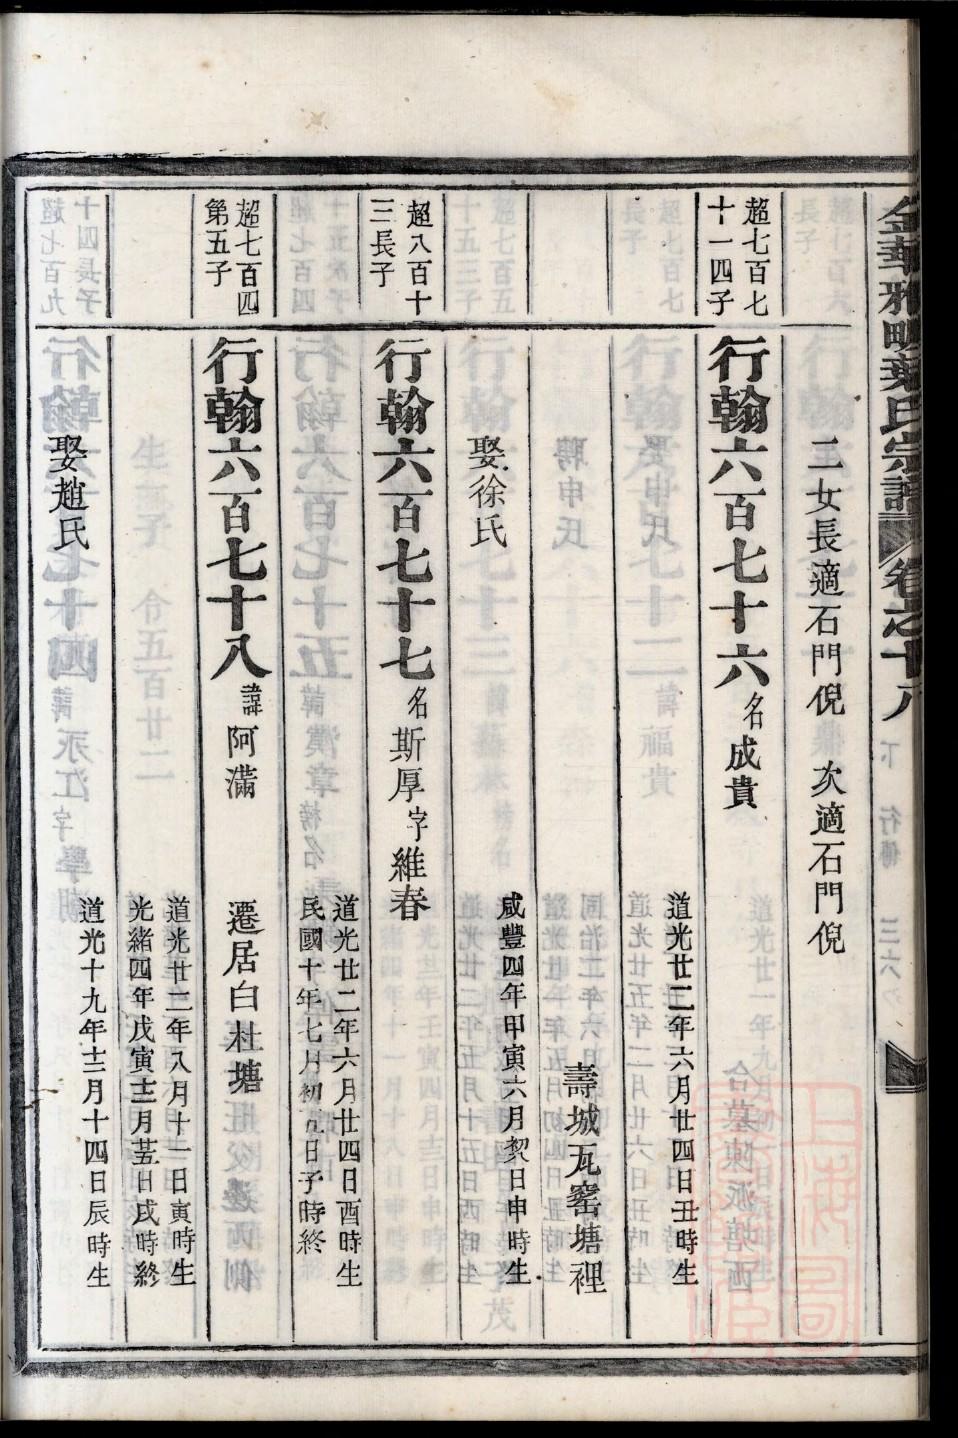 金華雅畈葉氏宗譜 卷之十八 下 行傳
二女長適石門倪 次適石門倪
超七百七
十一四子
行翰六百七十六 名成貴
道光廿二年六月廿四日丑時生
壽城瓦窑塘裡
娶徐氏
咸豐四年甲寅六月初日申時生
超八百十
三長子
行翰六百七十七 名斯厚字維春
道光廿二年六月廿四日酉時生
民國十年七月初九日子時終
超七百四
第五子
行翰六百七十八 諱阿滿
遷居白杜塘
道光廿二年八月十一日寅時生
光緒四年戊寅十二月廿五日戌時終
娶趙氏
道光十九年十二月十四日辰時生